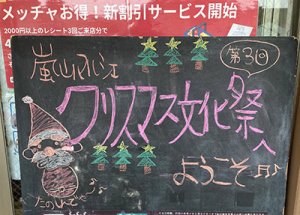 メッチャお得！新割引サービス開始
2000円以上のレシート3回ご来店分で
第3回
嵐山
クリスマス文化祭へ
ようこそ
たのしんでや